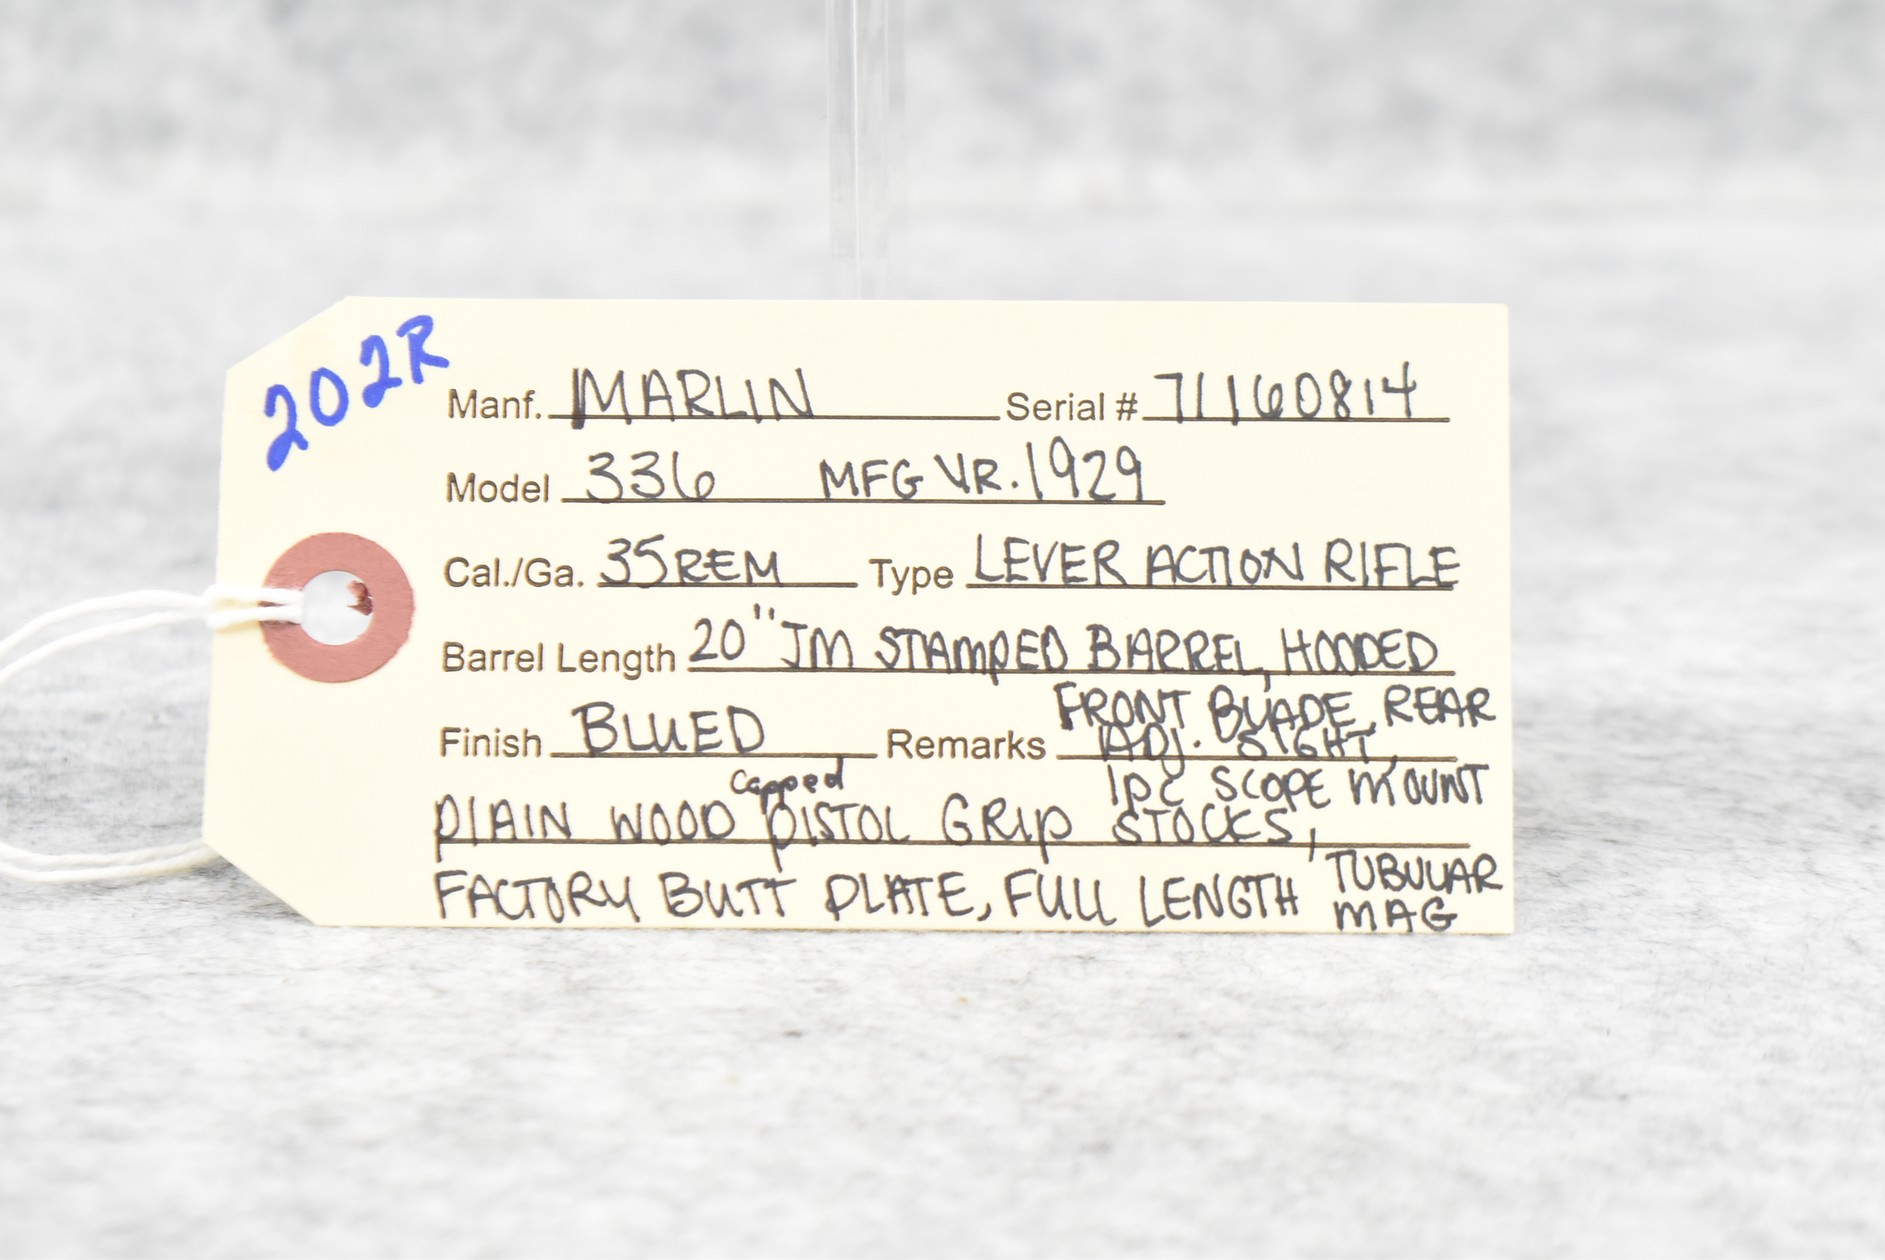 202R
Manf. MARLIN Serial # 71160814
Model 336 MFG YR. 1929
Cal./Ga. 35REM Type LEVER ACTION RIFLE
Barrel Length 20" JM STAMPED BARREL, HOODED
Finish BLUED Remarks FRONT BLADE, REAR
ADJ. SIGHT,
1PC SCOPE MOUNT
PLAIN WOOD capped PISTOL GRIP STOCKS,
FACTORY BUTT PLATE, FULL LENGTH TUBULAR
MAG